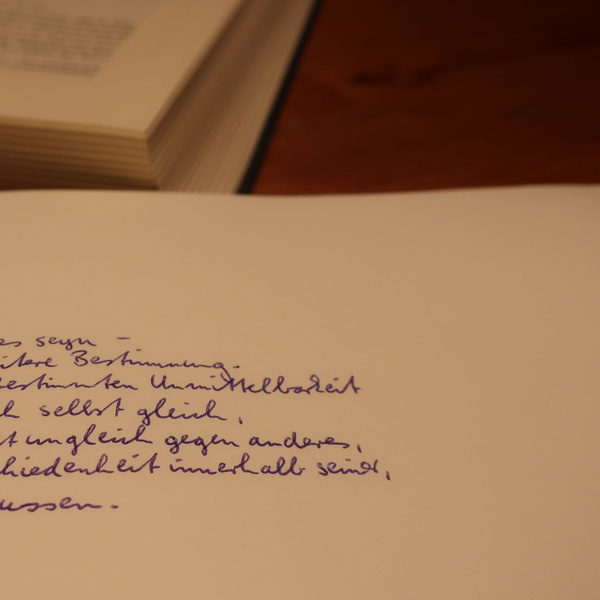 es seyn –
itere Bestimmung.
bestimmten Unmittelbarkeit
ch selbst gleich,
t ungleich gegen anderes,
hiedenheit innerhalb seiner,
ussen.